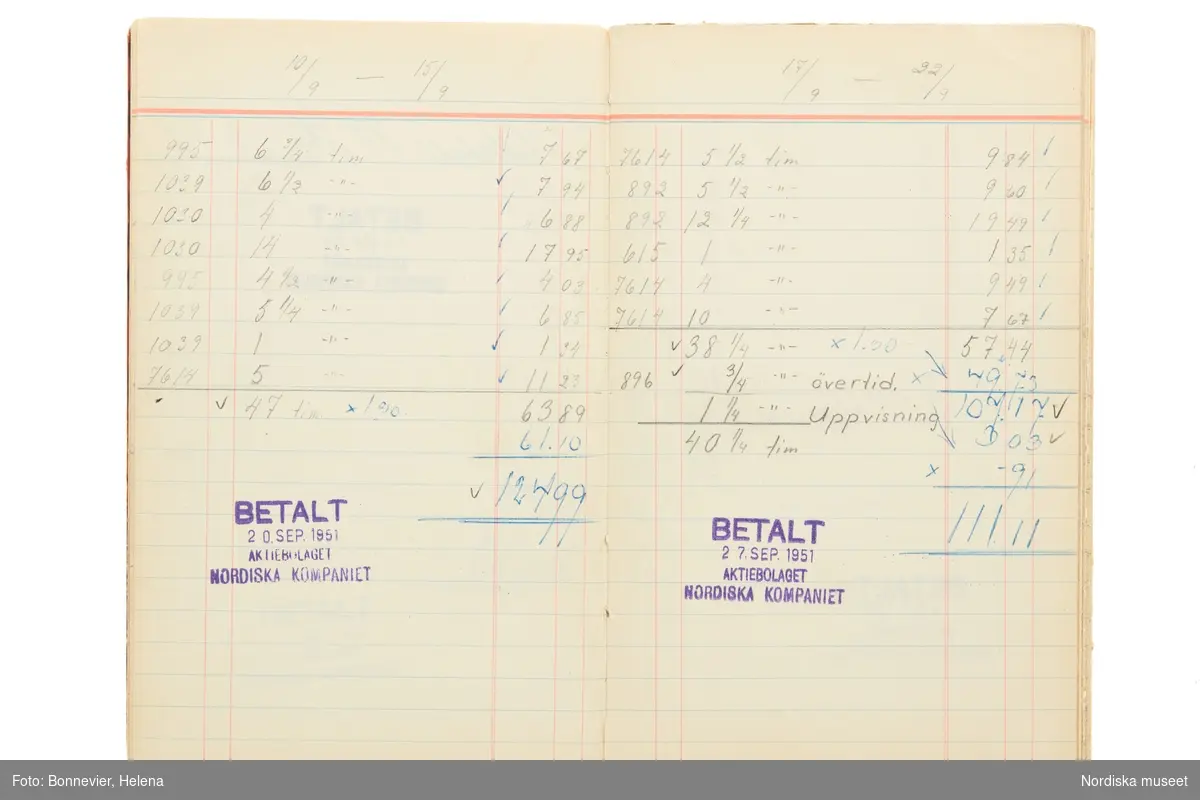 10/9 — 15/9
995 6 3/4 tim 7 67
1039 6 1/2 -"- ✓ 7 94
1030 4 -"- 6 88
1030 14 -"- 17 95
995 4 1/2 -"- 4 03
1039 5 1/4 -"- 6 85
1039 1 -"- ✓ 1 34
7614 5 -"- ✓ 11 23
✓ 47 tim x 1.30. 63 89
61.10
✓ 124 99
BETALT
20. SEP. 1951
AKTIEBOLAGET
NORDISKA KOMPANIET
17/9 — 22/9
7614 5 1/2 tim 9 84
892 5 1/2 -"- 9 60
892 12 1/4 -"- 19 49
615 1 -"- 1 35
7614 4 -"- 9 49
7614 10 -"- 7 67
✓ 38 1/4 -"- x 1.30 57.44
896 ✓ 3/4 -"- övertid. x 49 73
1 1/4 -"- Uppvisning 107.17 ✓
40 1/4 tim 3 03 ✓
x -91
111.11
BETALT
27. SEP. 1951
AKTIEBOLAGET
NORDISKA KOMPANIET
Foto: Bonnevier, Helena
Nordiska museet